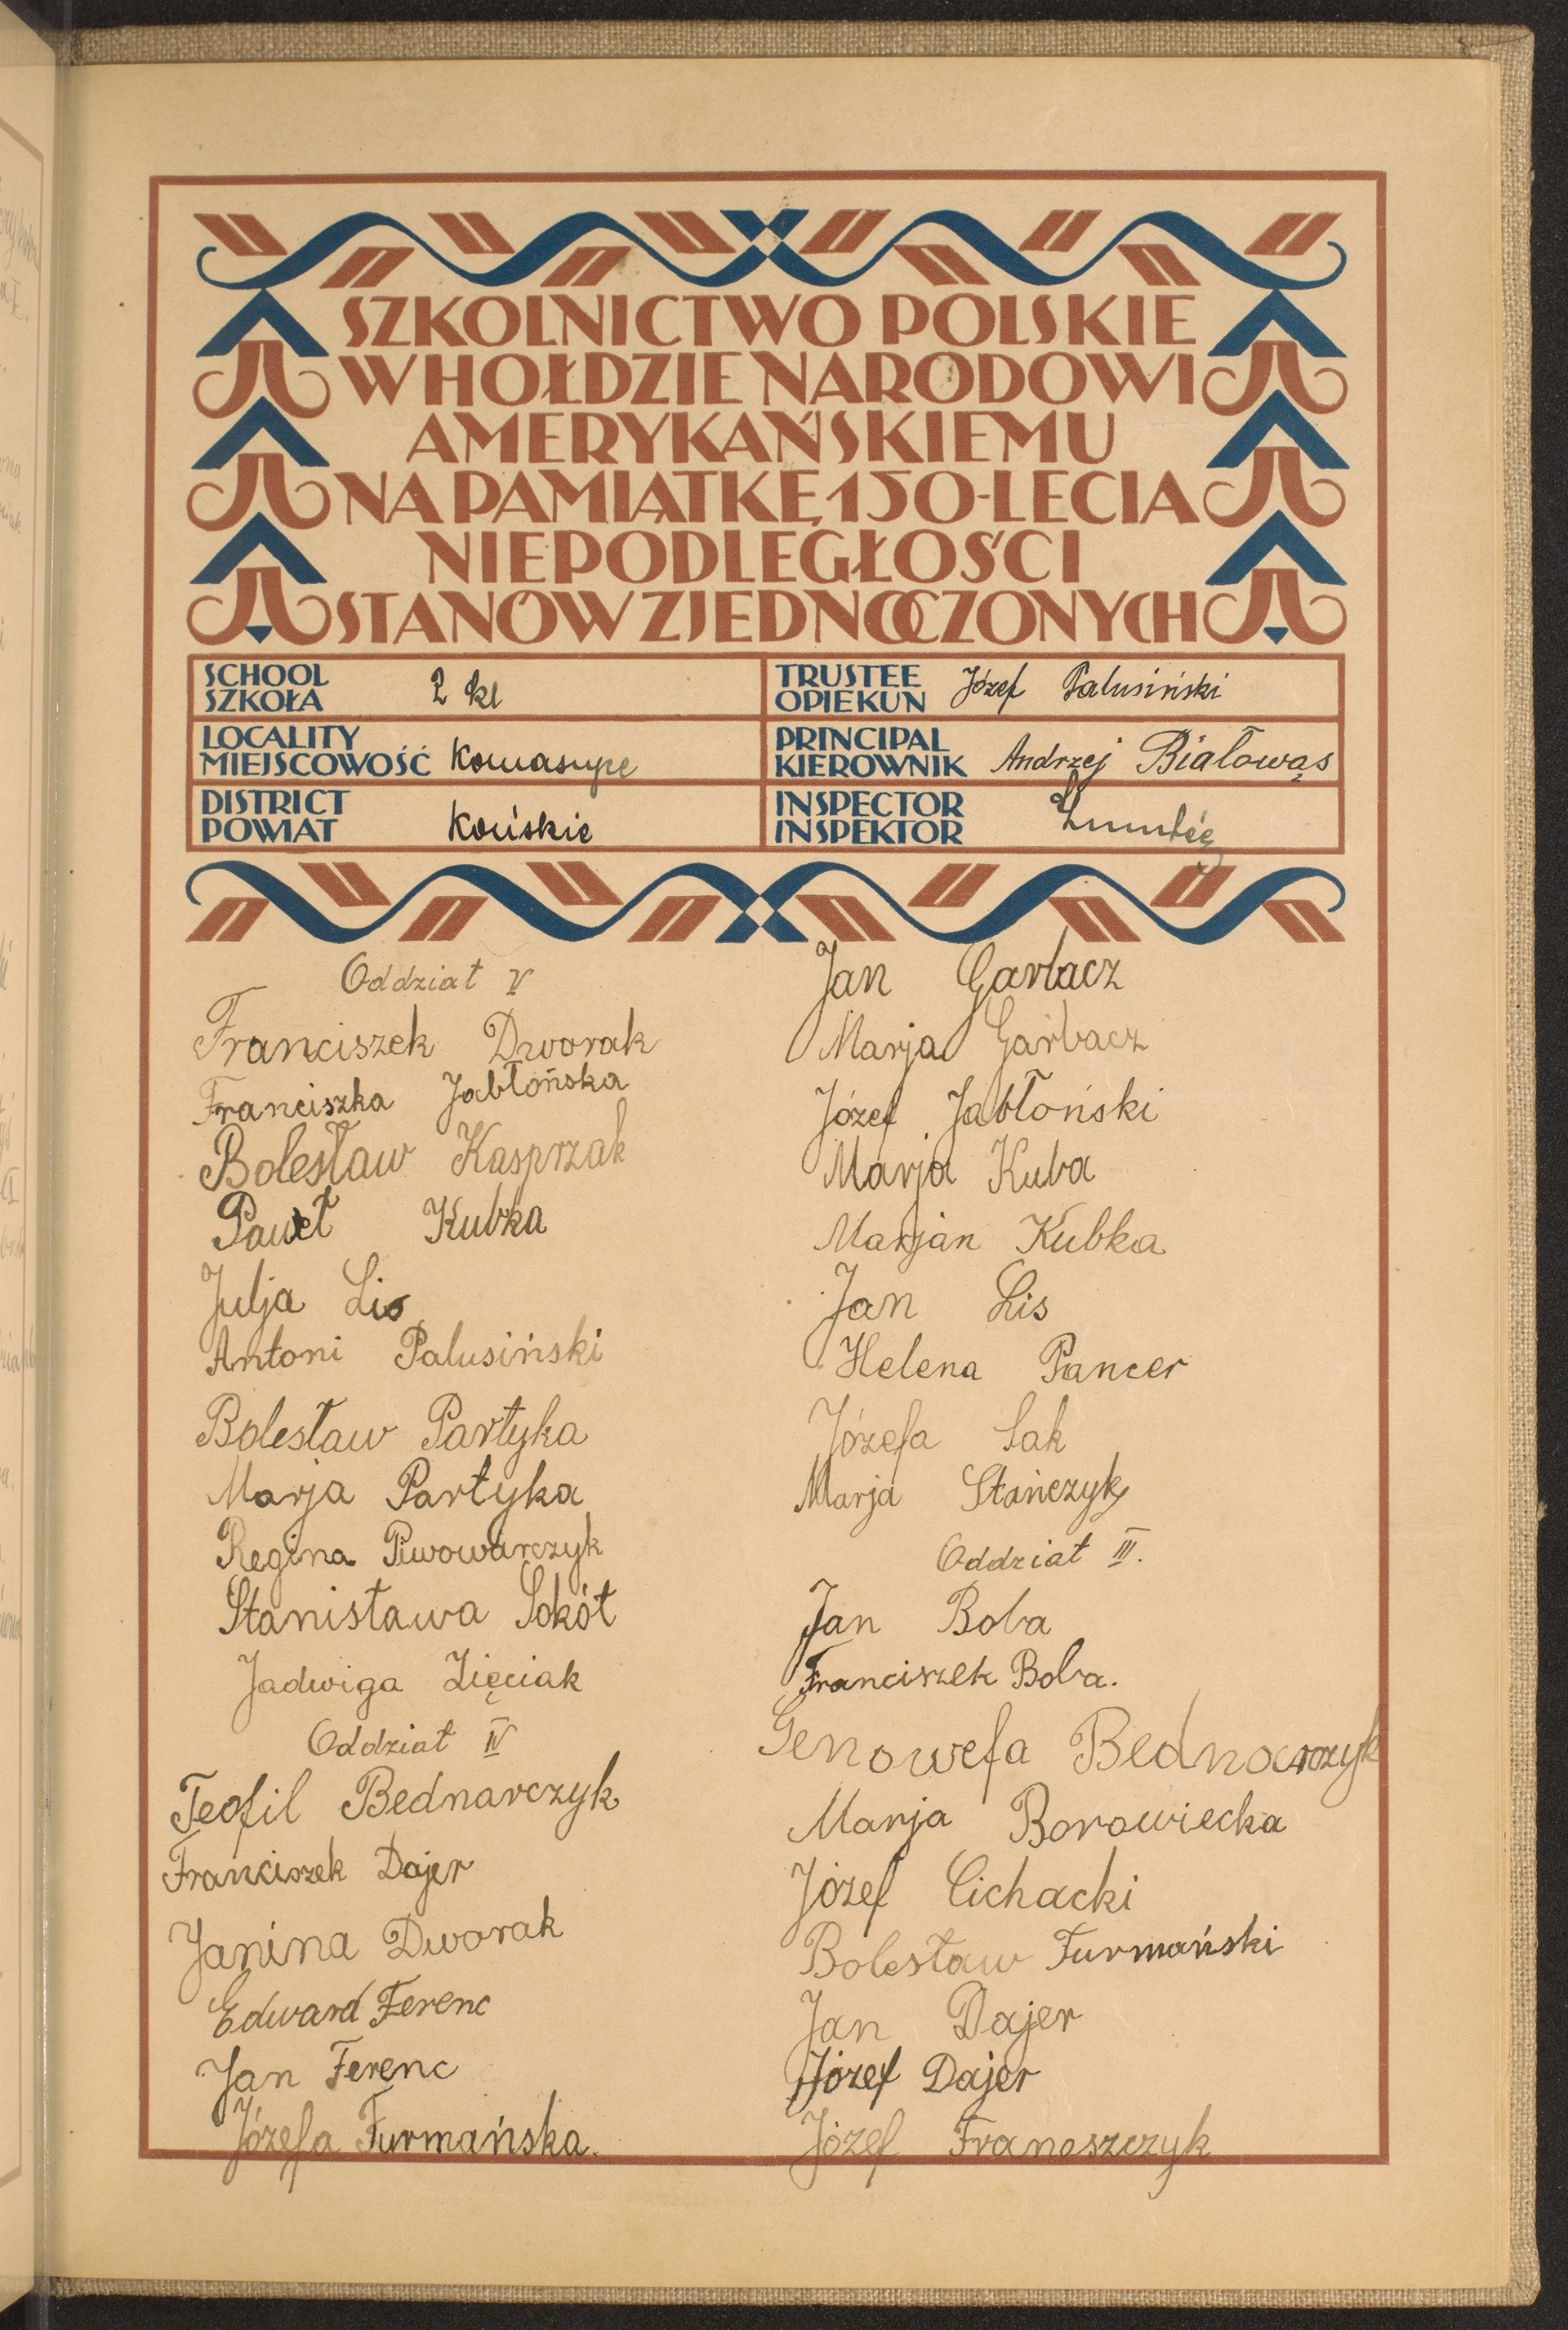 SZKOLNICTWO POLSKIE
W HOŁDZIE NARODOWI
AMERYKAŃSKIEMU
NA PAMIĄTKĘ 150-LECIA
NIEPODLEGŁOŚCI
STANÓW ZJEDNOCZONYCH
SCHOOL
SZKOŁA 2 kl
TRUSTEE
OPIEKUN Józef Palusiński
LOCALITY
MIEJSCOWOŚĆ
PRINCIPAL
KIEROWNIK Andrzej Białowąs
DISTRICT
POWIAT Końskie
INSPECTOR
INSPEKTOR
Oddział V
Franciszek Dworak
Franciszka Jabłońska
Bolesław Kasprzak
Paweł Kubka
Julja Lis
Antoni Palusiński
Bolesław Partyka
Marja Partyka
Regina Piwowarczyk
Stanisława Sokół
Jadwiga Zięciak
Oddział IV
Teofil Bednarczyk
Franciszek Dajer
Janina Dworak
Edward Ferenc
Jan Ferenc
Józefa Furmańska.
Jan Garbacz
Marja Garbacz
Józef Jabłoński
Marja Kuba
Marjan Kubka
Jan Lis
Helena Pancer
Józefa Sak
Marja Stańczyk
Oddział III.
Jan Boba
Franciszek Boba.
Genowefa Bednarczyk
Marja Borowiecka
Józef Cichacki
Bolesław Furmański
Jan Dajer
Józef Dajer
Józef Franoszczyk